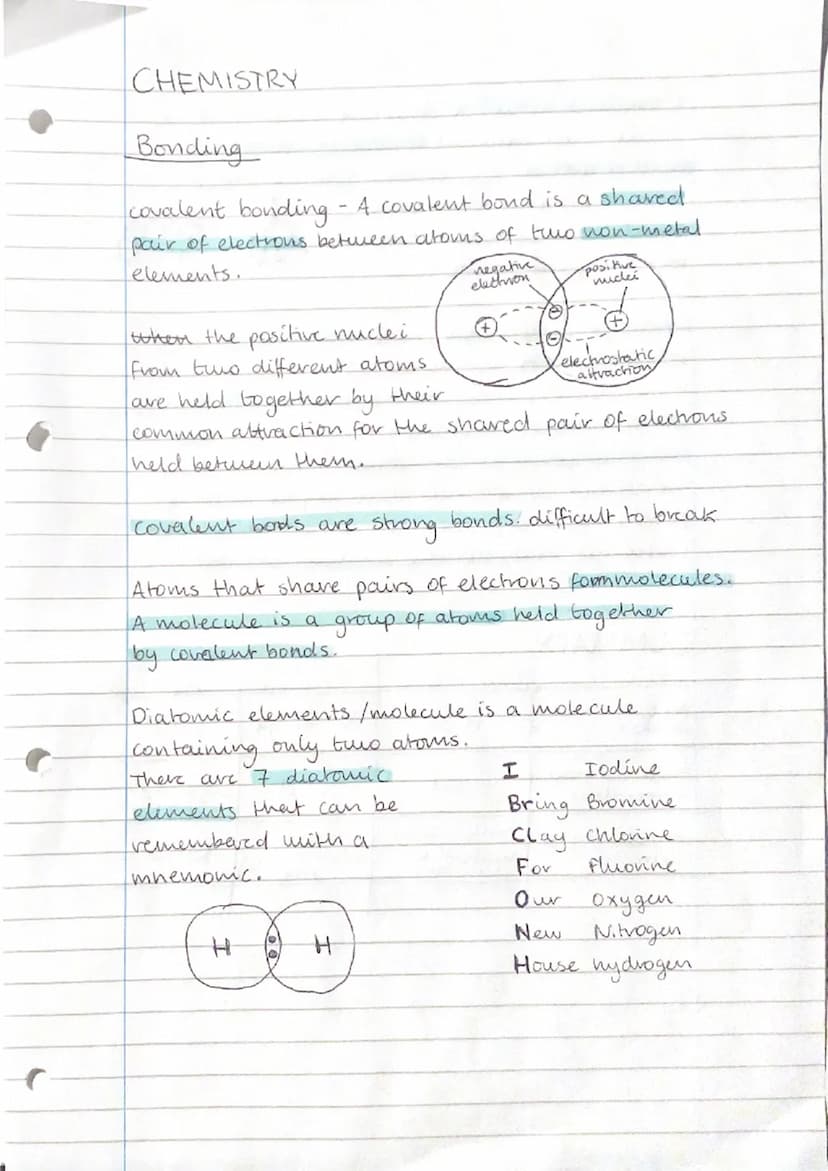 CHEMISTRY
Bonding
covalent bonding - A covalent bond is a shared
pair of electrons between atoms of two non-metal
elements.
negative
electron
positive
nuclei
+
-
-
+
electrostatic
attraction
When the positive nuclei
from two different atoms
are held together by their
common attraction for the shared pair of electrons
held between them.
covalent bonds are strong bonds: difficult to break
Atoms that share pairs of electrons form molecules.
A molecule is a group of atoms held together
by covalent bonds.
Diatomic elements / molecule is a molecule
containing only two atoms.
There are 7 diatomic
elements that can be
remembered with a
mnemonic.
I Iodine
Bring Bromine
Clay Chlorine
For Fluorine
Our Oxygen
New Nitrogen
House hydrogen
H H